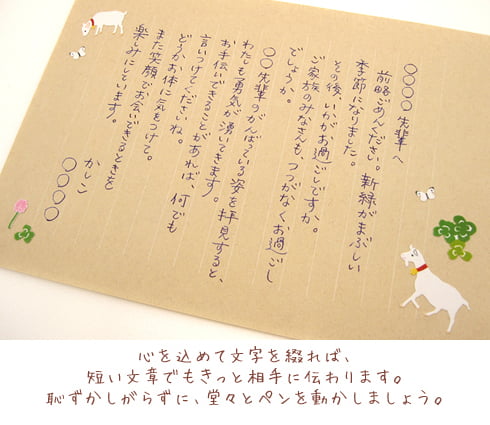 〇〇〇〇先輩へ
前略ごめんください。新緑がまぶしい
季節になりました。
その後、いかがお過ごしですか。
ご家族のみなさんも、つつがなくお過ごし
でしょうか。
〇〇先輩のがんばっている姿を拝見すると、
わたしも勇気が湧いてきます。
お手伝いできることがあれば、何でも
言いつけてくださいね。
どうかお体に気をつけて。
また笑顔でお会いできるときを
楽しみにしています。
かしこ
〇〇〇〇
心を込めて文字を綴れば、
短い文章でもきっと相手に伝わります。
恥ずかしがらずに、堂々とペンを動かしましょう。